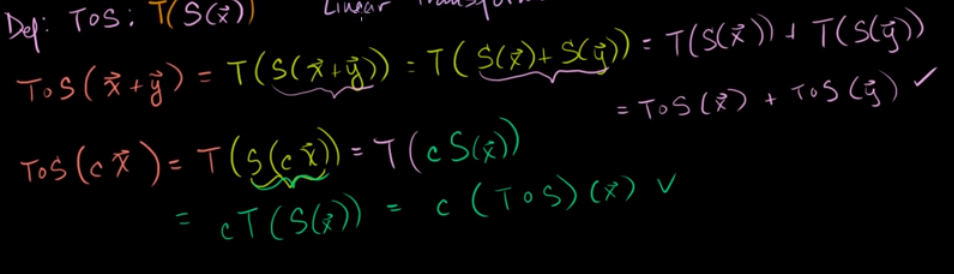 Def: ToS: T(S(x⃗)) Linear
T∘S(x⃗+y⃗) = T(S(x⃗+y⃗)) = T(S(x⃗)+S(y⃗)) = T(S(x⃗)) + T(S(y⃗))
= T∘S(x⃗) + T∘S(y⃗) ✓
T∘S(cx⃗) = T(S(cx⃗)) = T(cS(x⃗))
= cT(S(x⃗)) = c(T∘S)(x⃗) ✓